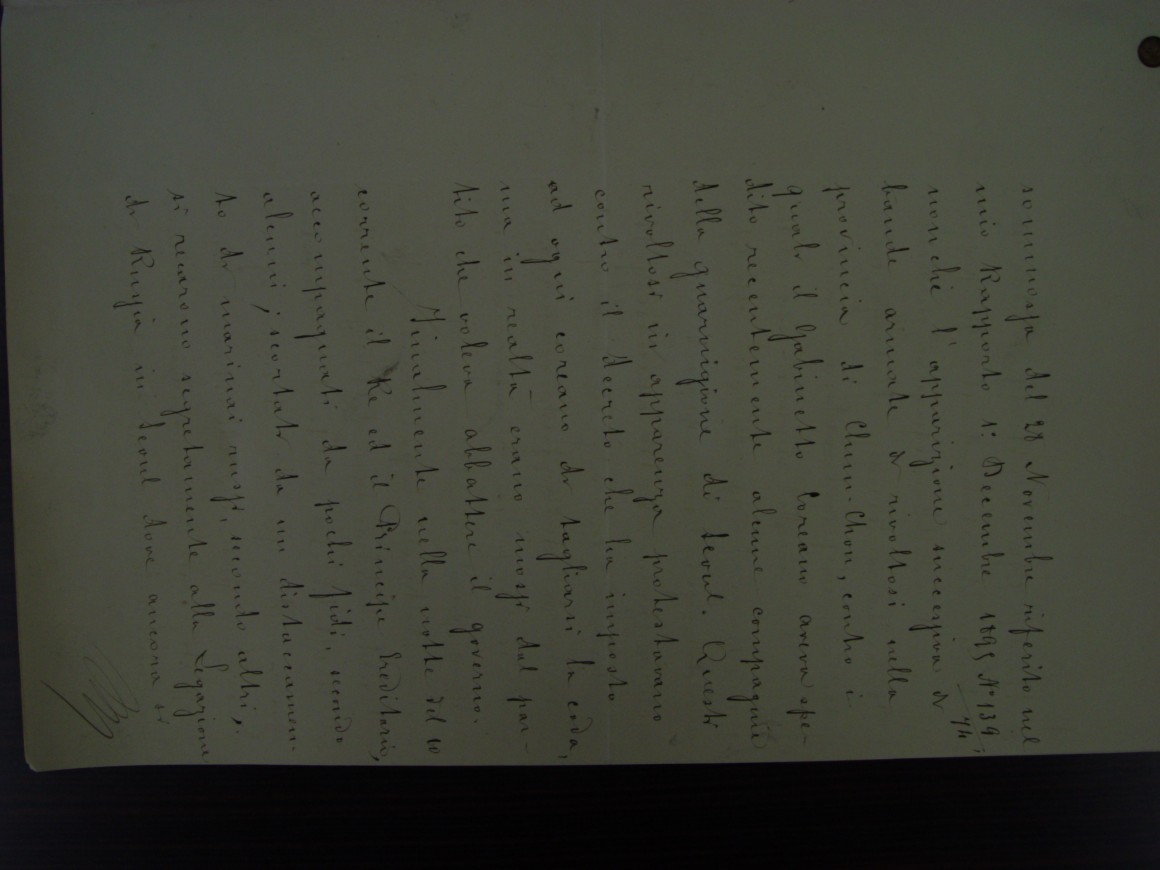 sommossa del 28 Novembre riferito nel
mio Rapporto 1º Decembre 1895 Nº 139/74;
nonchè l'apparizione successiva di
bande armate di rivoltosi nella
provincia di Chun-Chon, contro i
quali il Gabinetto Coreano aveva spe-
dito recentemente alcune compagnie
della guarnigione di Seoul. Questi
rivoltosi in apparenza protestavano
contro il decreto che ha imposto
ad ogni coreano di tagliarsi la coda,
ma in realtà erano mossi dal par-
tito che voleva abbattere il governo.
Finalmente nella notte del 10
corrente il Re ed il Principe Ereditario,
accompagnati da pochi fidi, secondo
alcuni; scortati da un distaccamen-
to di marinai russi, secondo altri,
si recarono segretamente alla Legazione
di Russia in Seoul dove ancora si